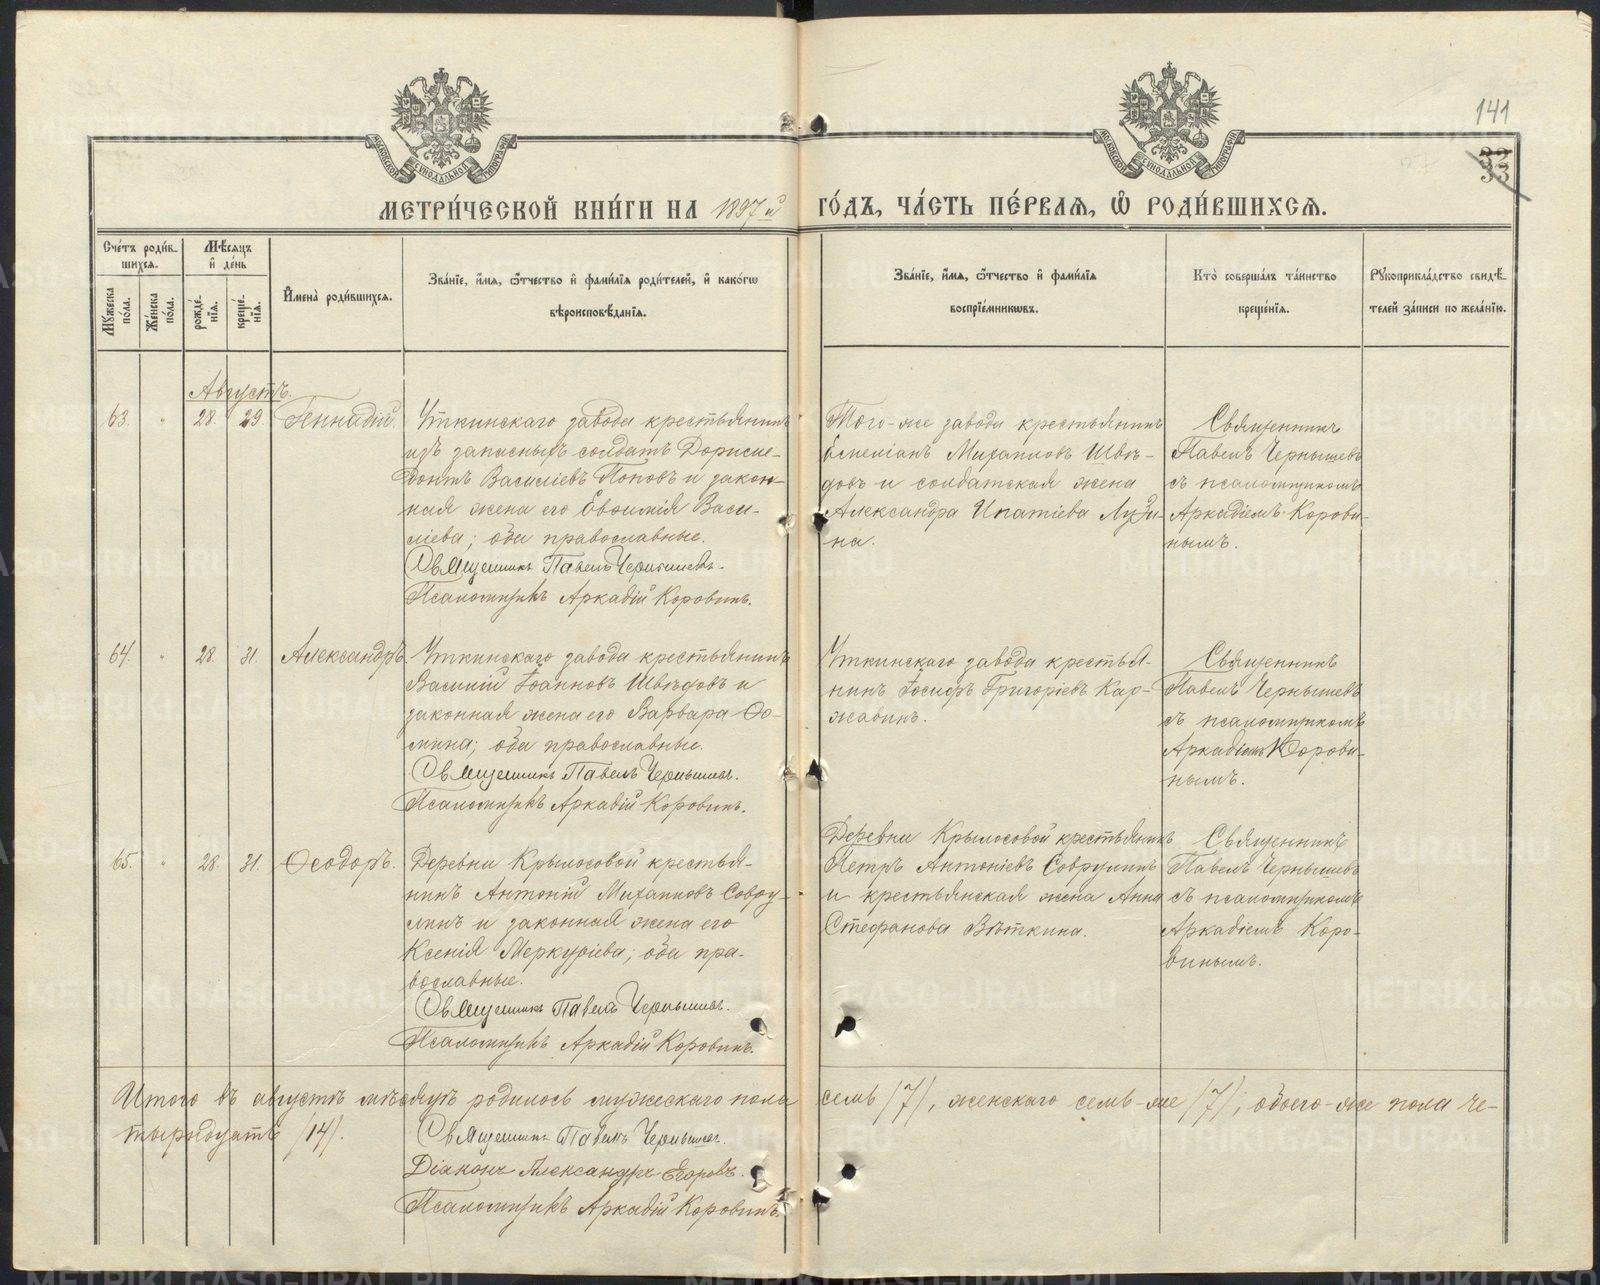 141
33
МОСКОВСКОЙ СѴНОДАЛЬНОЙ ТИПОГРАФІИ
МОСКОВСКОЙ СѴНОДАЛЬНОЙ ТИПОГРАФІИ
МЕТРИ́ЧЕСКОЙ КНИ́ГИ НА 1897й ГО́ДЪ, ЧА́СТЬ ПЕ́РВАЯ, Ѡ҆ РОДИ́ВШИХСЯ.
Сче́тъ роди́в-
шихся.
Мꙋжеска по́ла.
Же́нска по́ла.
Мѣ́сяцъ
и҆ де́нь
рожде́-
нія.
креще́-
нія.
И҆мена̀ роди́вшихся.
Зва́ніе, и҆́мя, ѻ҆́тчество и҆ фами́лія роди́телей, и҆ како́гѡ
вѣроисповѣ́данія.
Зва́ніе, и҆́мя, ѻ҆́тчество и҆ фами́лія
воспріе́мникѡвъ.
Кто̀ соверша́лъ та́инство
креще́нія.
Рꙋкоприкла́дство свидѣ́-
телей за́писи по жела́нію.
Августъ.
63. " 28. 29. Геннадій.
Уткинскаго завода крестьянинъ
изъ запасныхъ солдатъ Дориме-
донтъ Василіевъ Поповъ и закон-
ная жена его Евѳимія Васи-
ліева; оба православные.
Священникъ Павелъ Чернышевъ.
Псаломщикъ Аркадій Коровинъ.
Того-же завода крестьянинъ
Михаиловъ Швѣ-
довъ и солдатская жена
Александра Ипатіева Лузи-
на.
Священникъ
Павелъ Чернышевъ
съ псаломщикомъ
Аркадіемъ Корови-
нымъ.
64. " 28. 31. Александръ.
Уткинскаго завода крестьянинъ
Василій Іоанновъ Швѣдовъ и
законная жена его Варвара Ѳо-
мина; оба православные.
Священникъ Павелъ Чернышевъ.
Псаломщикъ Аркадій Коровинъ.
Уткинскаго завода крестья-
нинъ Іосифъ Григоріевъ Кар-
жавинъ.
Священникъ
Павелъ Чернышевъ
съ псаломщикомъ
Аркадіемъ Корови-
нымъ.
65. " 28. 31. Ѳеодоръ.
Деревни Крылосовой крестья-
нинъ Антоній Михаиловъ Совру-
линъ и законная жена его
Ксенія Меркуріева; оба пра-
вославные.
Священникъ Павелъ Чернышевъ.
Псаломщикъ Аркадій Коровинъ.
Деревни Крылосовой крестьянинъ
Петръ Антоніевъ Соврулинъ
и крестьянская жена Анна
Стефанова Вѣткина.
Священникъ
Павелъ Чернышевъ
съ псаломщикомъ
Аркадіемъ Коро-
винымъ.
Итого въ августѣ мѣсяцѣ родилось мужескаго пола семь /7/, женскаго семь-же /7/, обоего-же пола че-
тырнадцать /14/.
Священникъ Павелъ Чернышевъ.
Діаконъ Александръ Егоровъ.
Псаломщикъ Аркадій Коровинъ.
METRIKI.GASO-URAL.RU